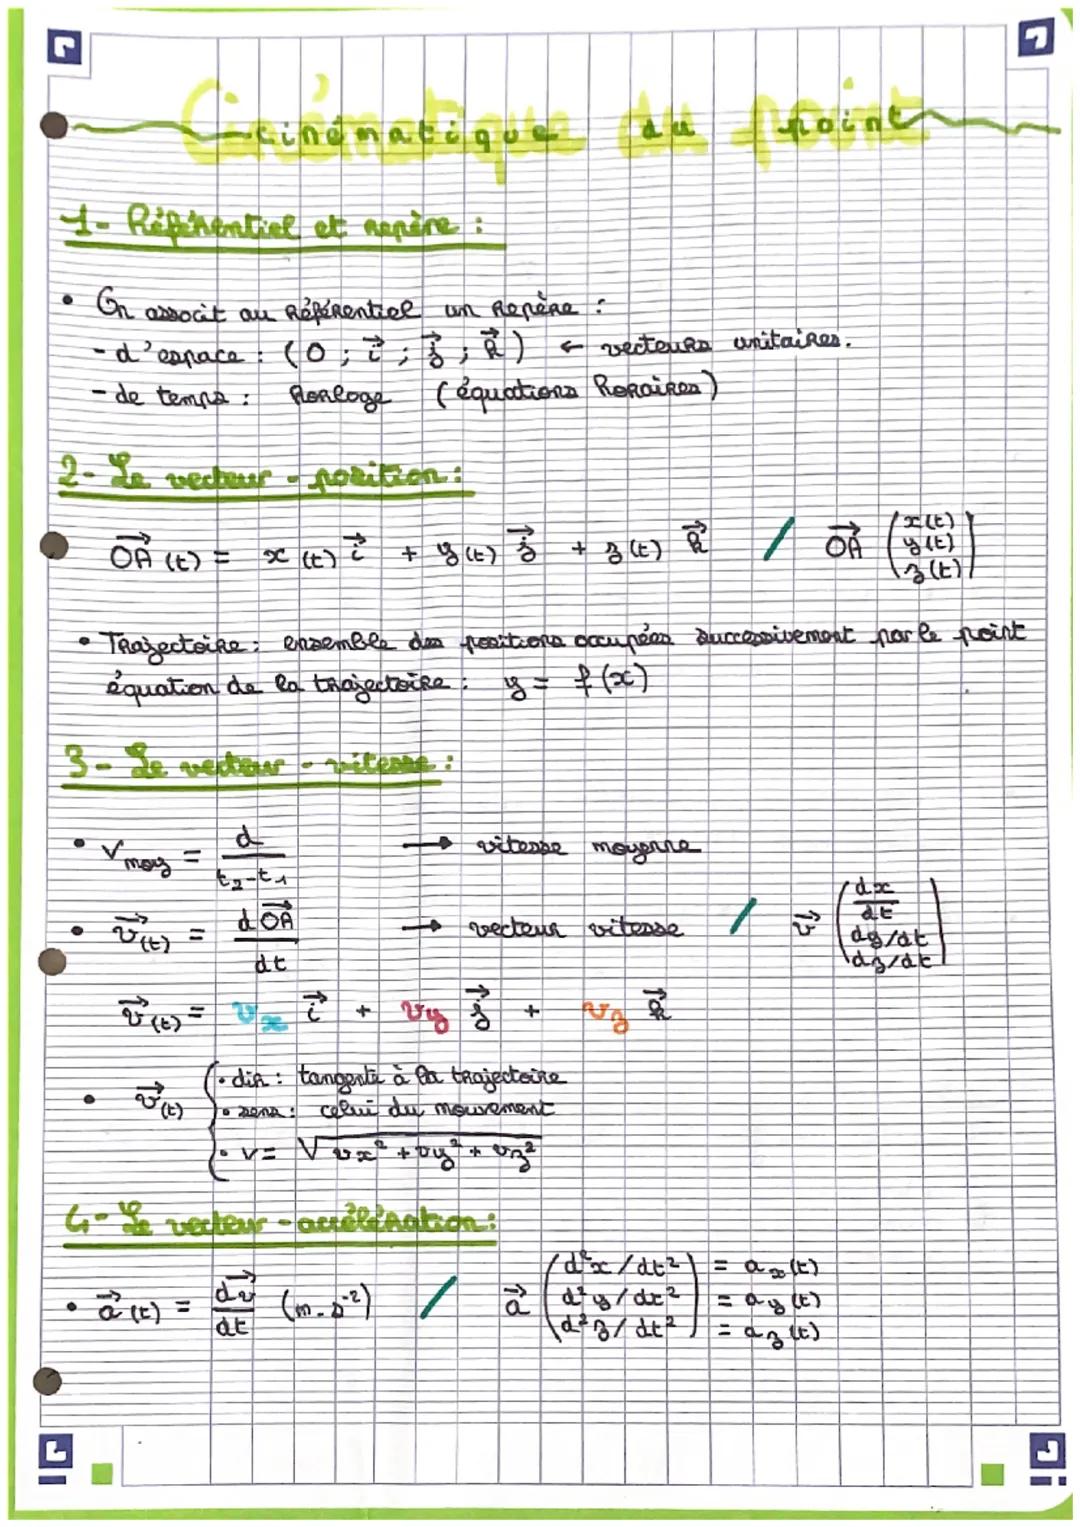 Cinématique du point
1- Référentiel et repère :
• On associt au Référentiel un Repère :
- d'espace : (O ; i⃗ ; j⃗ ; k⃗) ← vecteurs unitaires.
- de temps : horloge (équations horaires)
2- Le vecteur - position :
OA⃗ (t) = x (t) i⃗ + y (t) j⃗ + z (t) k⃗ / OA⃗ ( x(t)
y(t)
z(t) )
• Trajectoire : ensemble des positions occupées successivement par le point
équation de la trajectoire : y = f (x)
3- Le vecteur - vitesse :
• V moy = d / (t₂-t₁) → vitesse moyenne
• v⃗(t) = d OA⃗ / dt → vecteur vitesse / v⃗ ( dx/dt
dy/dt
dz/dt )
v⃗(t) = vx i⃗ + vy j⃗ + vz k⃗
• v⃗(t) { • dir : tangente à la trajectoire
• sens : celui du mouvement
• v = √(vx² + vy² + vz²)
4- Le vecteur - accélération :
• a⃗ (t) = dv⃗ / dt (m.s⁻²) / a⃗ ( d²x/dt² ) = ax(t)
d²y/dt² = ay(t)
d²z/dt² = az(t)